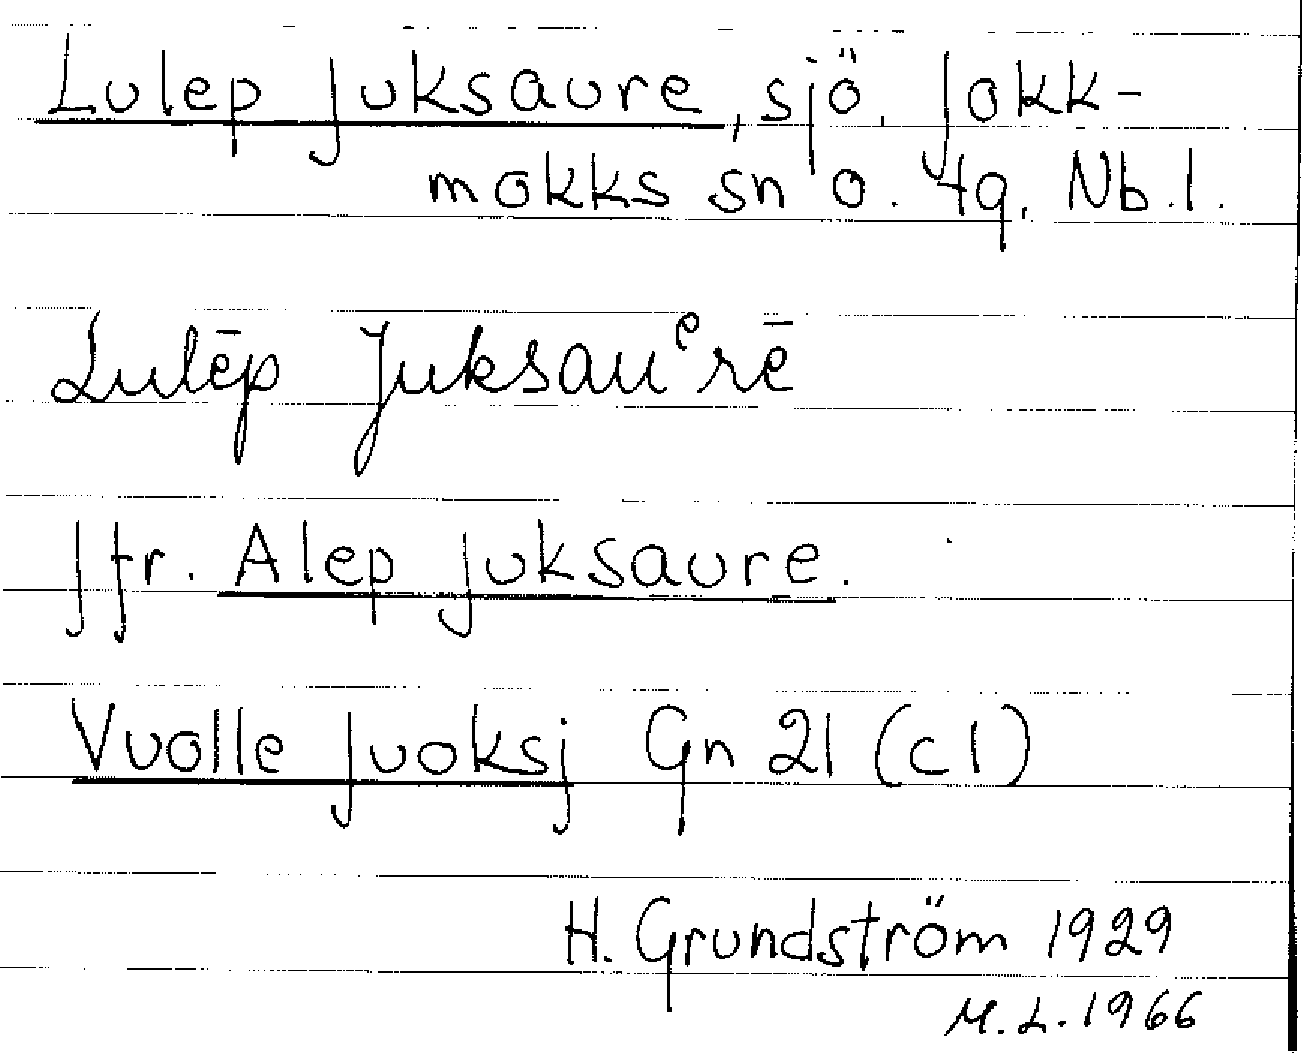 Lulep Juksaure, sjö, Jokk-
mokks sn o. tg, Nb.l.
Lulēp Juksauᵉrē
Jfr. Alep Juksaure.
Vuolle Juoksj Gn 21 (c1)
H. Grundström 1929
M.L. 1966